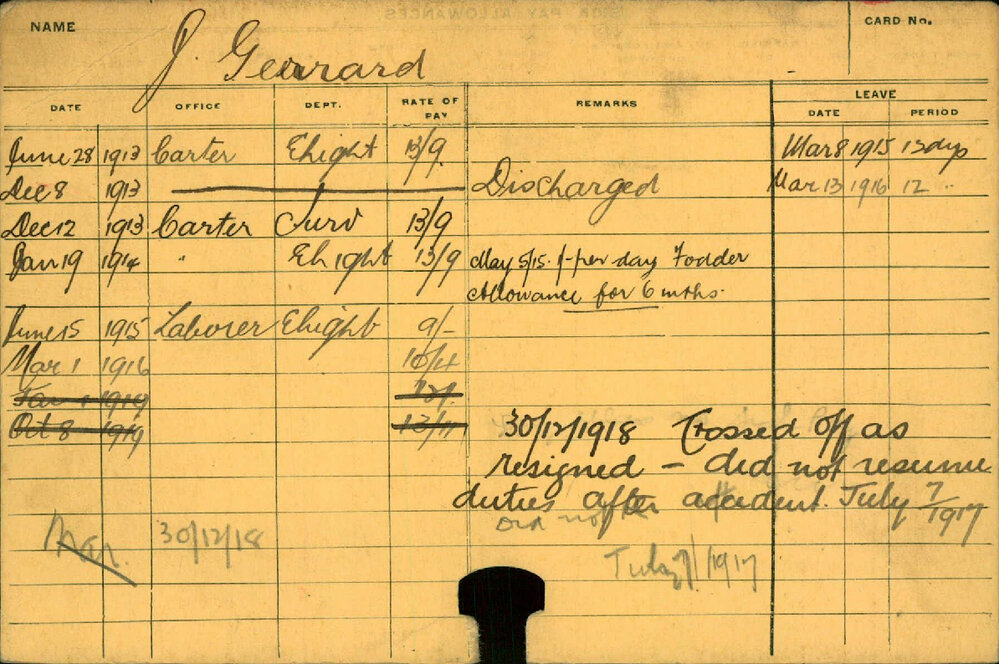 NAME J. Gerrard CARD No.
DATE OFFICE DEPT. RATE OF PAY REMARKS LEAVE
DATE PERIOD
June 28 1913 Carter Elight 13/9 Mar 8 1915 13 dys
Dec 8 1913 Discharged Mar 13 1916 12 "
Dec 12 1913 Carter Surv 13/9
Jan 19 1914 " Elight 13/9 May 5/15. 1/- per day Fodder
Allowance for 6 mths.
June 15 1915 Laborer Elight 9/-
Mar 1 1916 10/4
Jan 1 1919
Oct 8 1919 13/11 30/12/1918 Crossed off as
resigned — did not resume
duties after accident. July 7/1917
30/12/18
July 7/1917